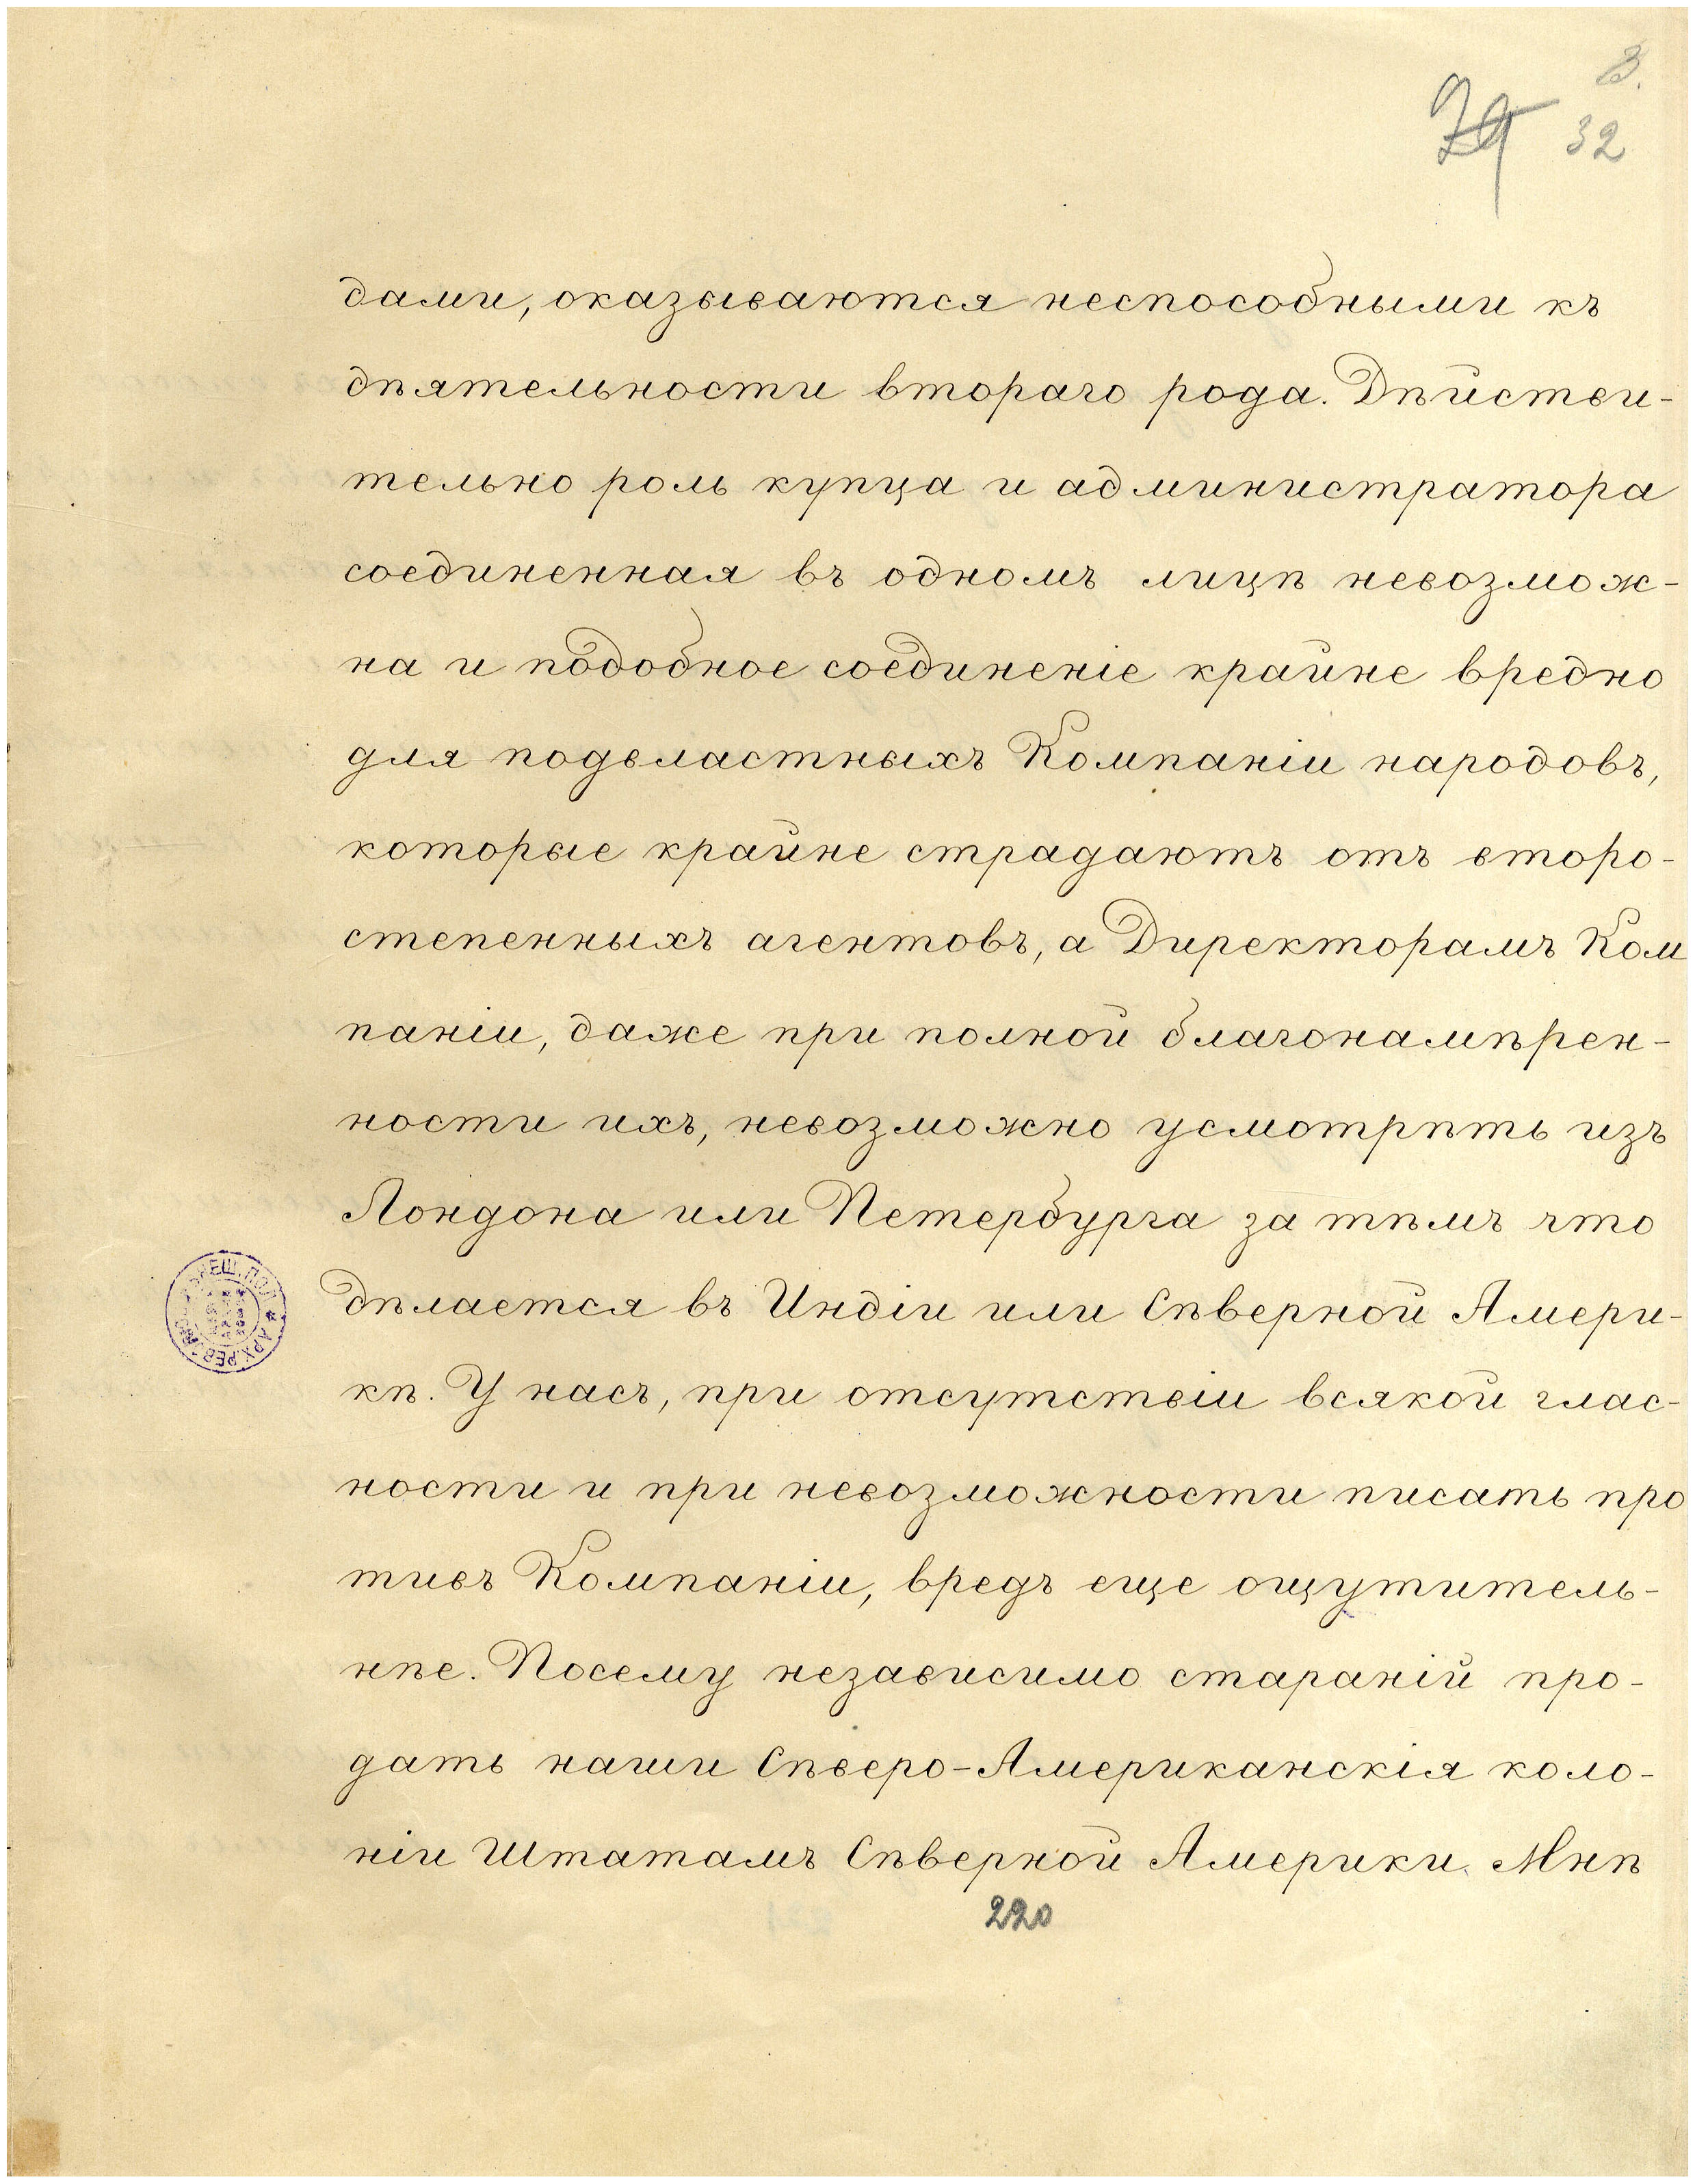 3.
29 32
дами, оказываются неспособными къ
дѣятельности втораго рода. Дѣйстви-
тельно роль купца и администратора
соединенная въ одномъ лицѣ невозмож-
на и подобное соединеніе крайне вредно
для подвластныхъ Компаніи народовъ,
которые крайне страдаютъ отъ второ-
степенныхъ агентовъ, а Директорамъ Ком
паніи, даже при полной благонамѣрен-
ности ихъ, невозможно усмотрѣть изъ
Лондона или Петербурга за тѣмъ что
дѣлается въ Индіи или Сѣверной Амери-
кѣ. У насъ, при отсутствіи всякой глас-
ности и при невозможности писать про
тивъ Компаніи, вредъ еще ощутитель-
нѣе. Посему независимо стараній про-
дать наши Сѣверо-Американскія коло-
ніи Штатамъ Сѣверной Америки. Мнѣ
220